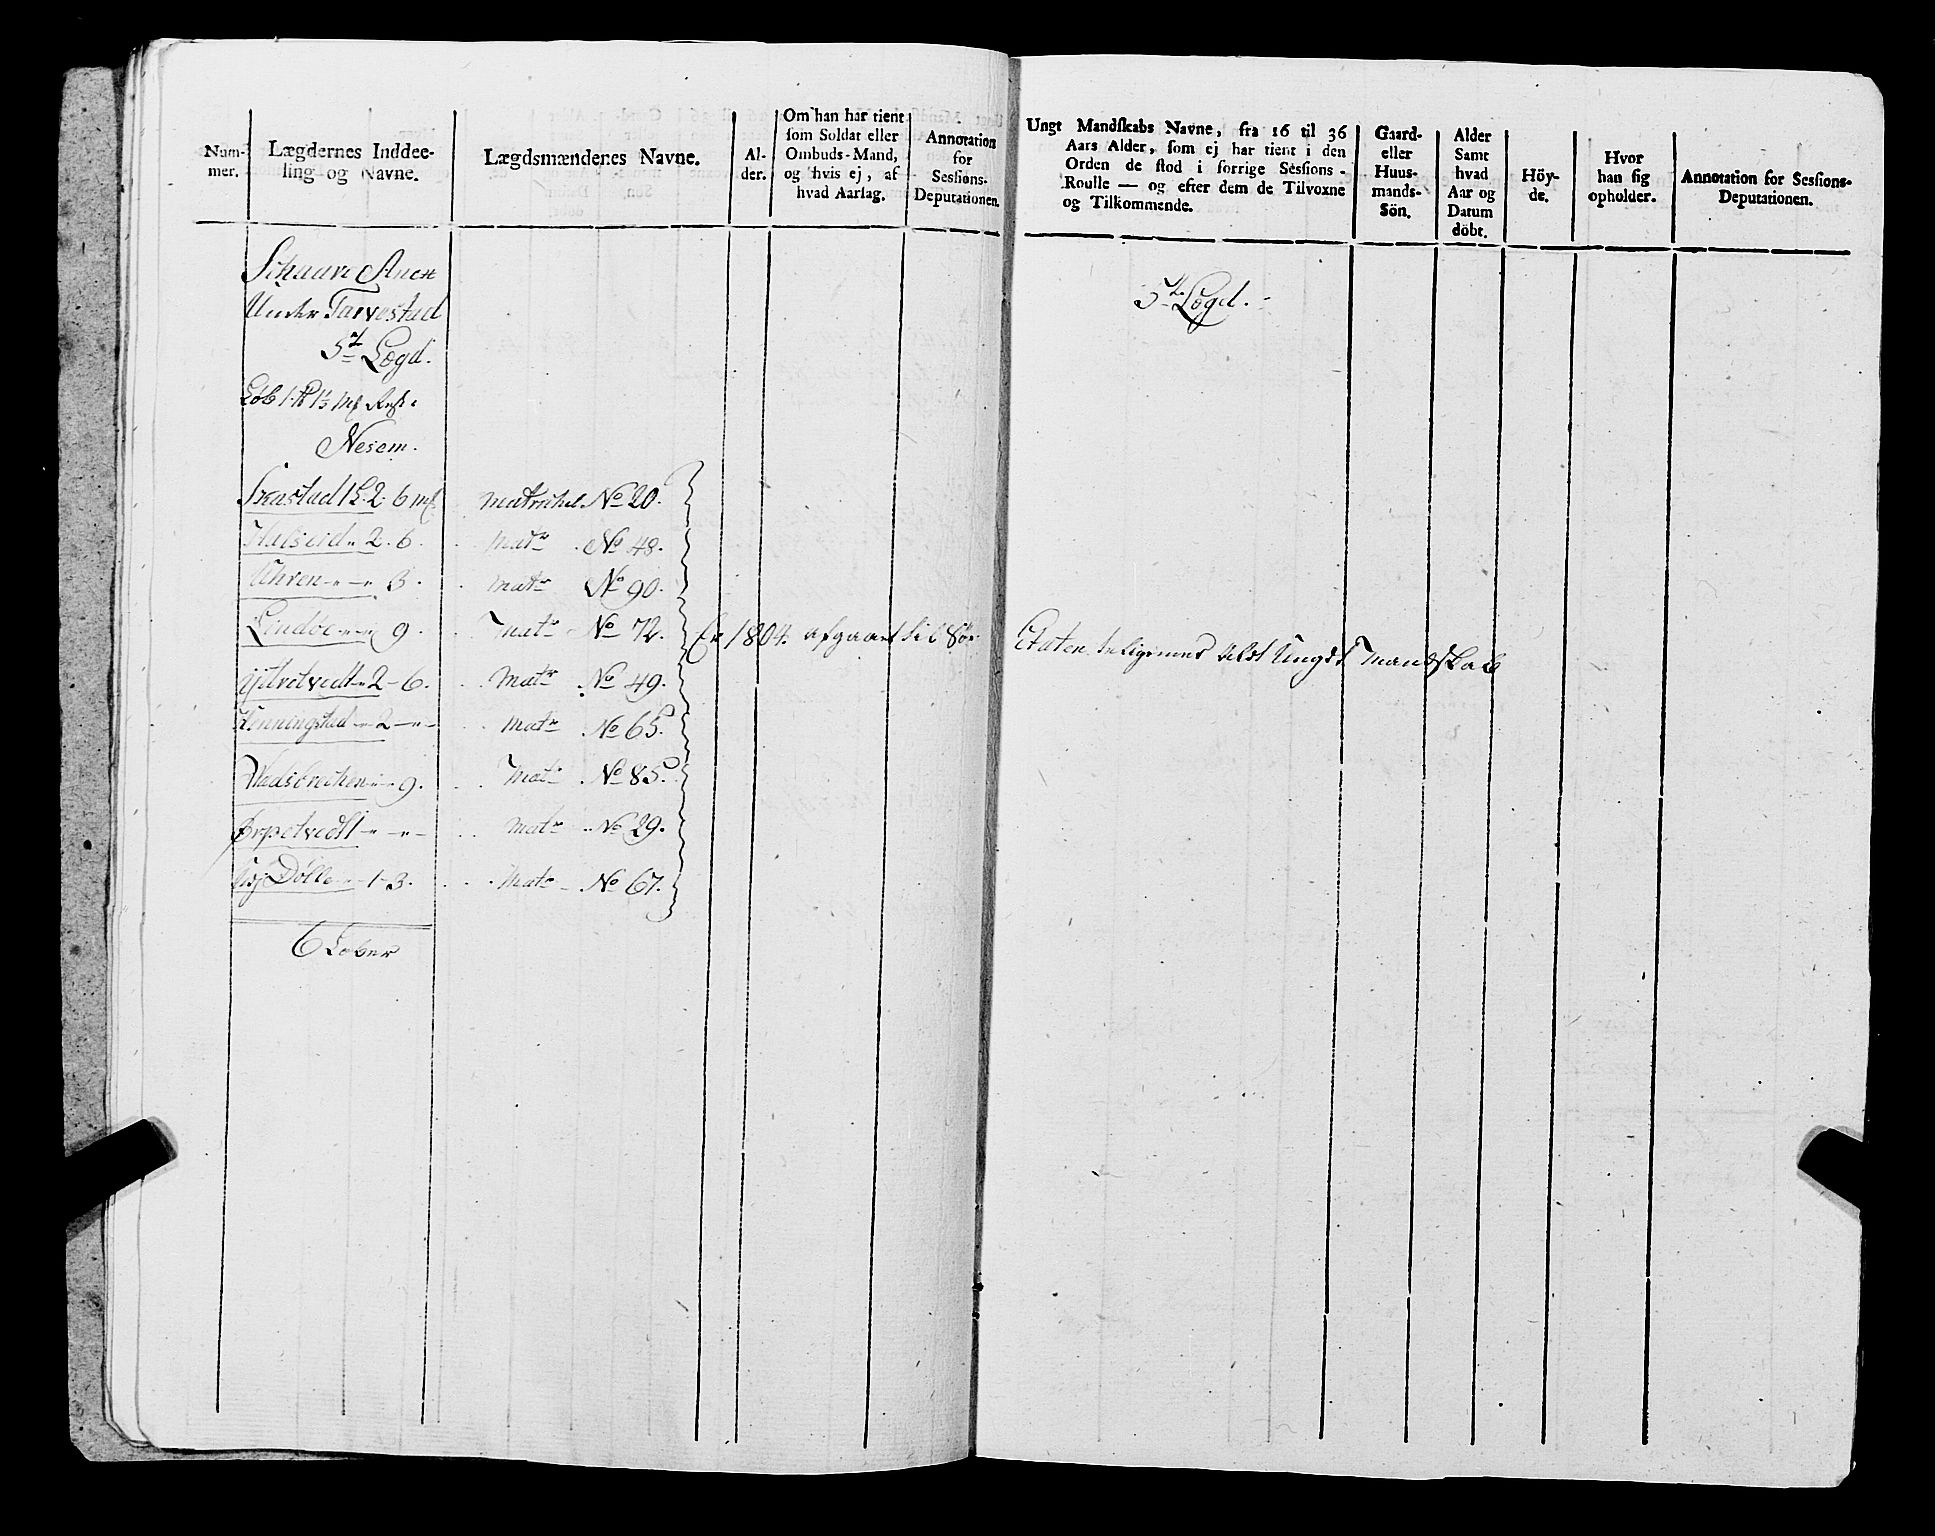 Num-
mer.
Lægdernes Inddee-
ling og Navne.
Lægdsmændenes Navne.
Al-
der.
Om han har tient
som Soldat eller
Ombuds-Mand,
og hvis ej, af
hvad Aarsag.
Annotation
for
Sessions-
Deputationen.
Under Tarvestad
5te Lægd.
Nesem.
Skastad 1 L 2. 6 mk matrichel No 20.
Halseid " 2. 6. matr No 48.
Uhren - " - " 3. matr No 90.
Lindøe " " 9. matr No 72. Er 1804 afgaaet til Sør
2 - 6. matr No 49.
Henningstad - " 2 - " - matr No 65.
9. matr No 85.
Ørpetvedt - " - " - matr No 29.
Dölle - " 1 - 3. matr No 67.
6 Løber
Ungt Mandskabs Navne, fra 16 til 36
Aars Alder, som ej har tient i den
Orden de stod i forrige Sessions-
Roulle — og efter dem de Tilvoxne
og Tilkommende.
Gaard-
eller
Huus-
mands-
Sön.
Alder
Samt
hvad
Aar og
Datum
döbt.
Höy-
de.
Hvor
han sig
opholder.
Annotation for Sessions-
Deputationen.
5te Lægd.
Etaten tilligemed Ungt Mandskab